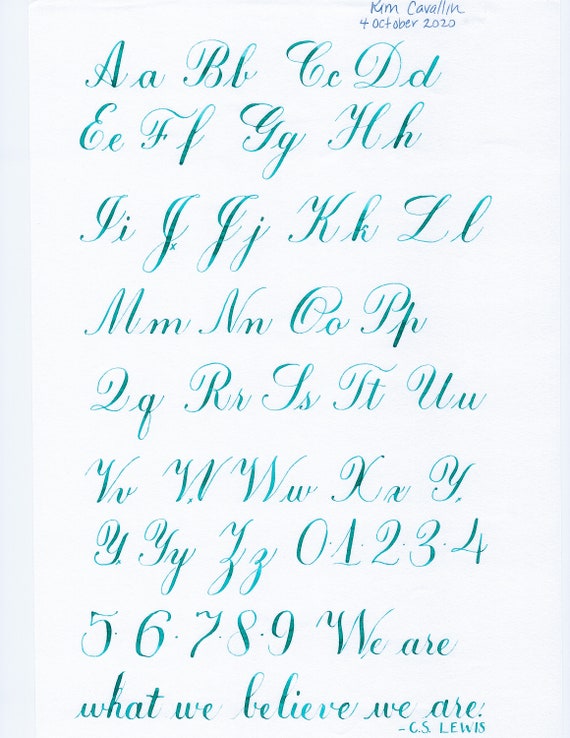 Kim Cavallin
4 October 2020
A a Bb Cc Dd
Ee Ff Gg Hh
Ii J Jj Kk Ll
Mm Nn Oo Pp
Qq Rr Ss Tt Uu
Vv W Ww Xx Y
Y Yy Zz 0·1·2·3·4
5·6·7·8·9 We are
what we believe we are.
-C.S. LEWIS